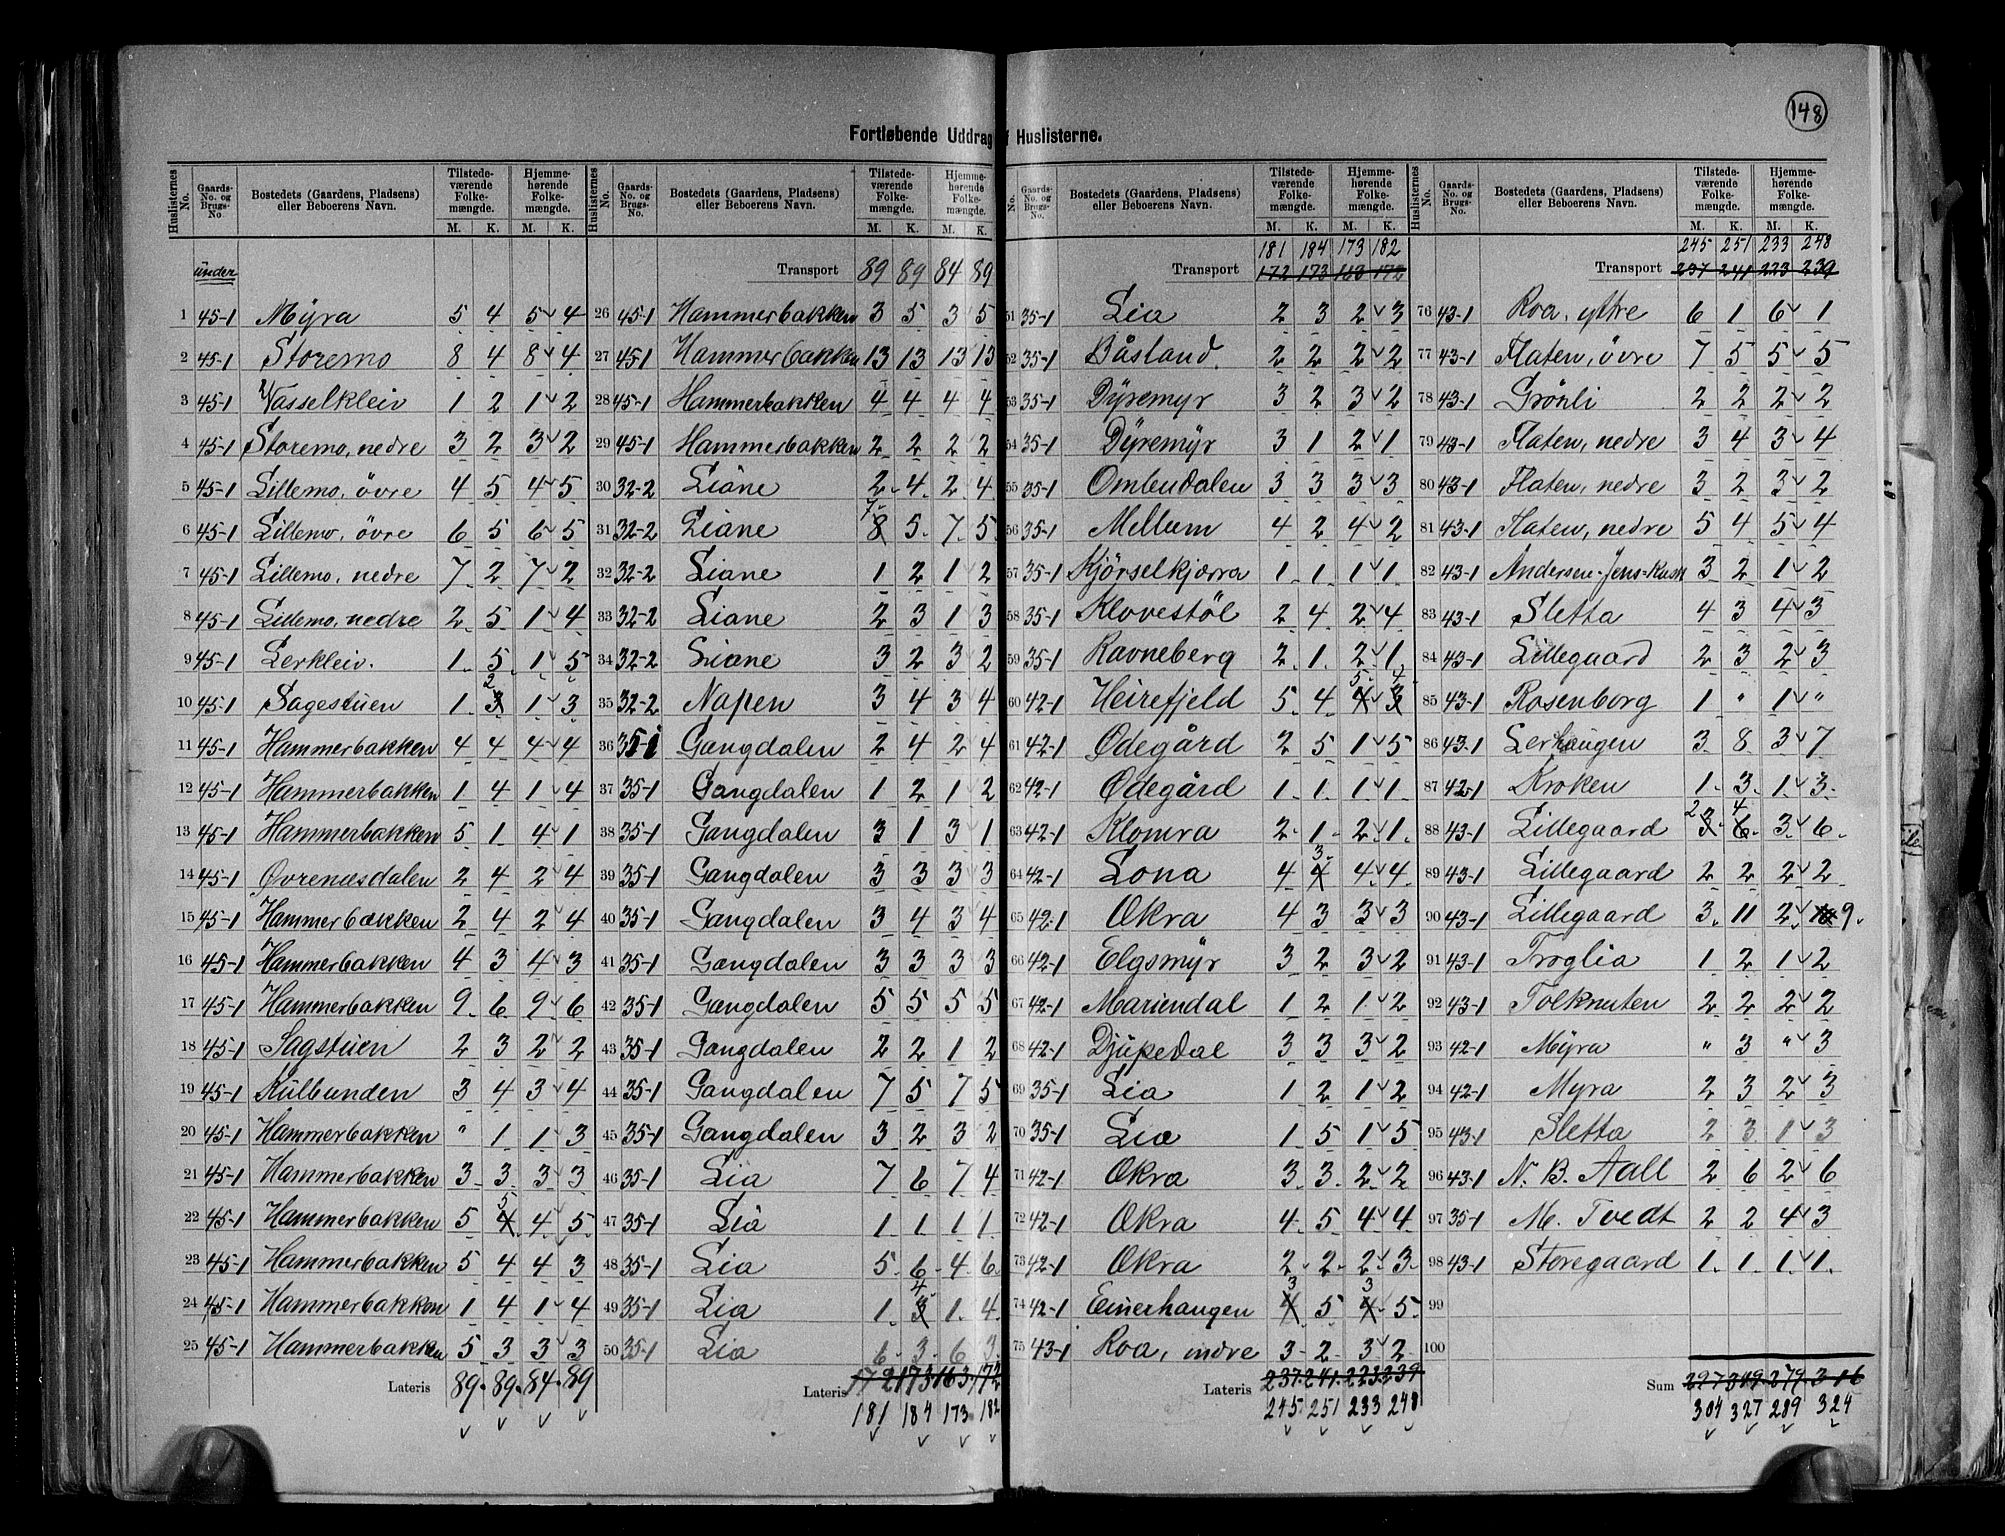 148
Fortløbende Uddrag f Huslisterne.
Huslisternes No. | Gaards-No. og Brugs-No | Bostedets (Gaardens, Pladsens) eller Beboerens Navn. | Tilstedeværende Folkemængde. M. K. | Hjemmehørende Folkemængde. M. K.
under
1 45-1 Myra 5 4 5 4
2 45-1 Storemo 8 4 8 4
3 45-1 Vasselkleiv 1 2 1 2
4 45-1 Storemo, nedre 3 2 3 2
5 45-1 Lillemo, övre 4 5 4 5
6 45-1 Lillemo, övre 6 5 6 5
7 45-1 Lillemo, nedre 7 2 7 2
8 45-1 Lillemo, nedre 2 5 1 4
9 45-1 Lerkleiv. 1 5 1 5
10 45-1 Sagestuen 1 2 1 3
11 45-1 Hammerbakken 4 4 4 4
12 45-1 Hammerbakken 1 4 1 4
13 45-1 Hammerbakken 5 1 4 1
14 45-1 Øvrenæsdalen 2 4 2 4
15 45-1 Hammerbakken 2 4 2 4
16 45-1 Hammerbakken 4 3 4 3
17 45-1 Hammerbakken 9 6 9 6
18 45-1 Sagstuen 2 3 2 2
19 45-1 Kulbunden 3 4 3 4
20 45-1 Hammerbakken " 1 1 3
21 45-1 Hammerbakken 3 3 3 3
22 45-1 Hammerbakken 5 5 4 5
23 45-1 Hammerbakken 5 4 4 3
24 45-1 Hammerbakken 1 4 1 4
25 45-1 Hammerbakken 5 3 3 3
Lateris 89 89 84 89
Huslisternes No. | Gaards-No. og Brugs-No. | Bostedets (Gaardens, Pladsens) eller Beboerens Navn. | Tilstedeværende Folkemængde. M. K. | Hjemmehørende Folkemængde. M. K.
Transport 89 89 84 89
26 45-1 Hammerbakken 3 5 3 5
27 45-1 Hammerbakken 13 13 13 13
28 45-1 Hammerbakken 4 4 4 4
29 45-1 Hammerbakken 2 2 2 2
30 32-2 Liane 2 4 2 4
31 32-2 Liane 7 5 7 5
32 32-2 Liane 1 2 1 2
33 32-2 Liane 2 3 1 3
34 32-2 Liane 3 2 3 2
35 32-2 Napen 3 4 3 4
36 35-1 Gangdalen 2 4 2 4
37 35-1 Gangdalen 1 2 1 2
38 35-1 Gangdalen 3 1 3 1
39 35-1 Gangdalen 3 3 3 3
40 35-1 Gangdalen 3 4 3 4
41 35-1 Gangdalen 3 3 3 3
42 35-1 Gangdalen 5 5 5 5
43 35-1 Gangdalen 2 2 1 2
44 35-1 Gangdalen 7 5 7 5
45 35-1 Gangdalen 3 2 3 2
46 35-1 Lia 7 6 7 4
47 35-1 Lia 1 1 1 1
48 35-1 Lia 5 6 4 6
49 35-1 Lia 1 4 1 4
50 35-1 Lia 6 3 6 3
Lateris 172 173 163 172
181 184 173 182
No. | Gaards-No. og Brugs-No. | Bostedets (Gaardens, Pladsens) eller Beboerens Navn. | Tilstedeværende Folkemængde. M. K. | Hjemmehørende Folkemængde. M. K.
181 184 173 182
Transport 172 173 163 172
51 35-1 Lia 2 3 2 3
52 35-1 Båsland. 2 2 2 2
53 35-1 Dyremyr 3 2 3 2
54 35-1 Dyremyr 3 1 2 1
55 35-1 Ombudalen 3 3 3 3
56 35-1 Mellum 4 2 4 2
57 35-1 Kjörselkjærra 1 1 1 1
58 35-1 Klovestöl 2 4 2 4
59 35-1 Ravneberg 2 1 2 1
60 42-1 Heirefjeld 5 4 5 4
61 42-1 Ødegård 2 5 1 5
62 42-1 Ødegård 1 1 1 1
63 42-1 Klomra 2 1 2 1
64 42-1 Lona 4 3 4 4
65 42-1 Økra 4 3 3 3
66 42-1 Elgsmyr 3 2 3 2
67 42-1 Mariendal 1 2 1 2
68 42-1 Djupedal 3 3 3 2
69 35-1 Lia 1 2 1 2
70 35-1 Lia 1 5 1 5
71 42-1 Økra 3 3 2 2
72 42-1 Økra 4 5 4 4
73 42-1 Økra 2 2 2 3
74 42-1 Einerhaugen 3 5 3 5
75 43-1 Roa, indre 3 2 3 2
Lateris 237 241 223 239
245 251 233 248
Huslisternes No. | Gaards-No. og Brugs-No. | Bostedets (Gaardens, Pladsens) eller Beboerens Navn. | Tilstedeværende Folkemængde. M. K. | Hjemmehørende Folkemængde. M. K.
245 251 233 248
Transport 237 241 223 239
76 43-1 Roa, yttre 6 1 6 1
77 43-1 Flaten, övre 7 5 5 5
78 43-1 Grönli 2 2 2 2
79 43-1 Flaten, nedre 3 4 3 4
80 43-1 Flaten, nedre 3 2 3 2
81 43-1 Flaten, nedre 5 4 5 4
82 43-1 Andersen, Jens 3 2 1 2
83 43-1 Sletta 4 3 4 3
84 43-1 Lillegaard 2 3 2 3
85 43-1 Rosenborg 1 " 1 "
86 43-1 Lerhaugen 3 8 3 7
87 42-1 Kroken 1 3 1 3
88 43-1 Lillegaard 2 4 3 6
89 43-1 Lillegaard 2 2 2 2
90 43-1 Lillegaard 3 11 2 9
91 43-1 Troglia 1 2 1 2
92 43-1 Tolknuten 2 2 2 2
93 42-1 Myra " 3 " 3
94 42-1 Myra 2 3 2 3
95 43-1 Sletta 2 3 1 3
96 43-1 N. B. Aall 2 6 2 6
97 35-1 M. Tvedt 2 2 4 3
98 43-1 Storegaard 1 1 1 1
99
100
Sum 297 319 279 316
304 327 289 324